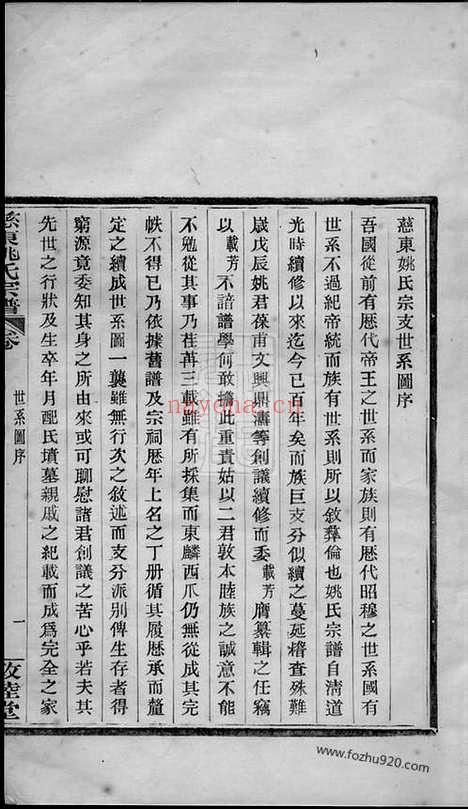 慈東姚氏宗支世系圖序
吾國從前有歷代帝王之世系而家族則有歷代昭穆之世系國有
世系不過紀帝統而族有世系則所以敘彝倫也姚氏宗譜自淸道
光時續修以來迄今已百年矣而族巨支分似續之蔓延稽查殊難
歲戊辰姚君葆甫文興鼎濤等創議續修而委載芳膺纂輯之任竊
以載芳不諳譜學何敢擔此重責姑以二君敦本睦族之誠意不能
不勉從其事乃荏苒三載雖有所採集而東麟西爪仍無從成其完
帙不得已乃依據舊譜及宗祠歷年上名之丁册循其履歷承而釐
定之續成世系圖一襲雖無行次之敘述而支分派別俾生存者得
窮源竟委知其身之所由來或可聊慰諸君創議之苦心乎若夫其
先世之行狀及生卒年月配氏墳墓親戚之紀載而成爲完全之家
慈東姚氏宗譜
卷
世系圖序
一
敦睦堂
nayona.cn
www.fozhu920.com